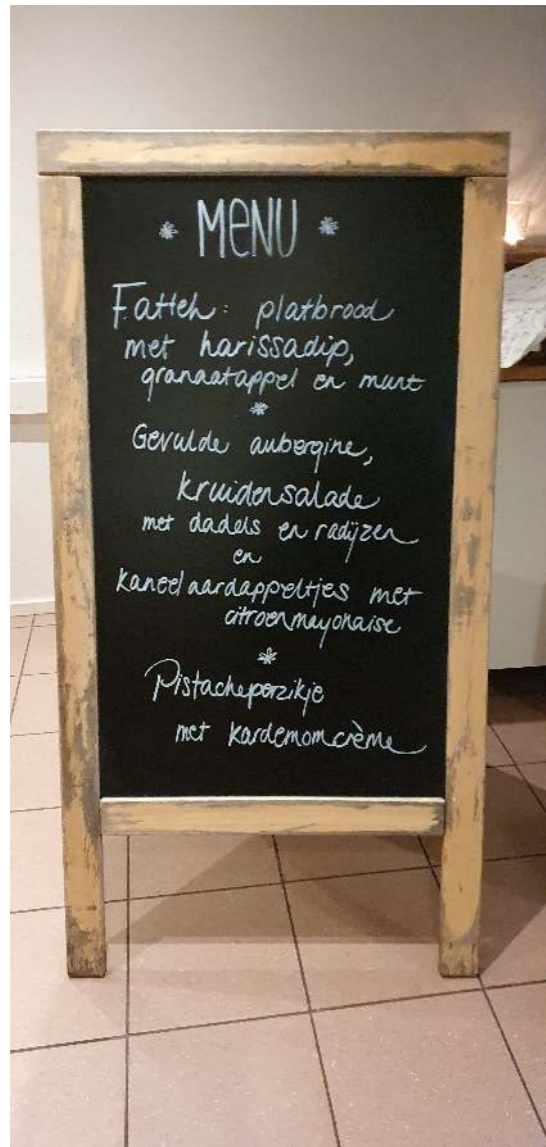 * MENU *
Fatteh: platbrood
met harissadip,
granaatappel en munt
*
Gevulde aubergine,
kruidensalade
met dadels en radijzen
en
kaneelaardappeltjes met
citroenmayonaise
*
Pistacheperzikje
met kardemomcrème